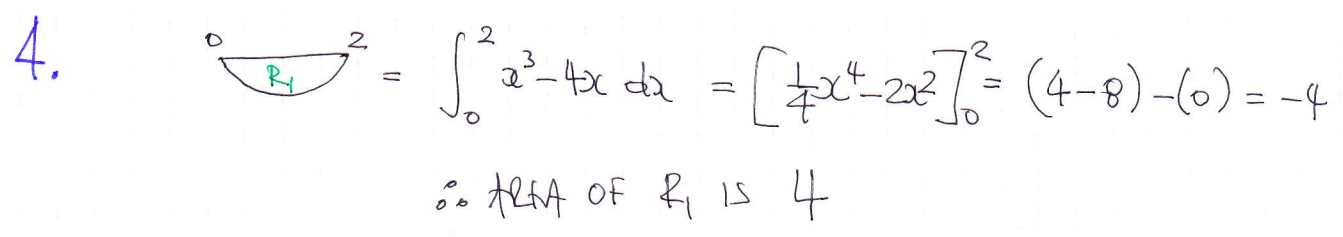 4. 0 2 R₁ = ∫₀² x³ - 4x dx = [¼x⁴ - 2x²]₀² = (4-8) - (0) = -4
∴ AREA OF R₁ IS 4